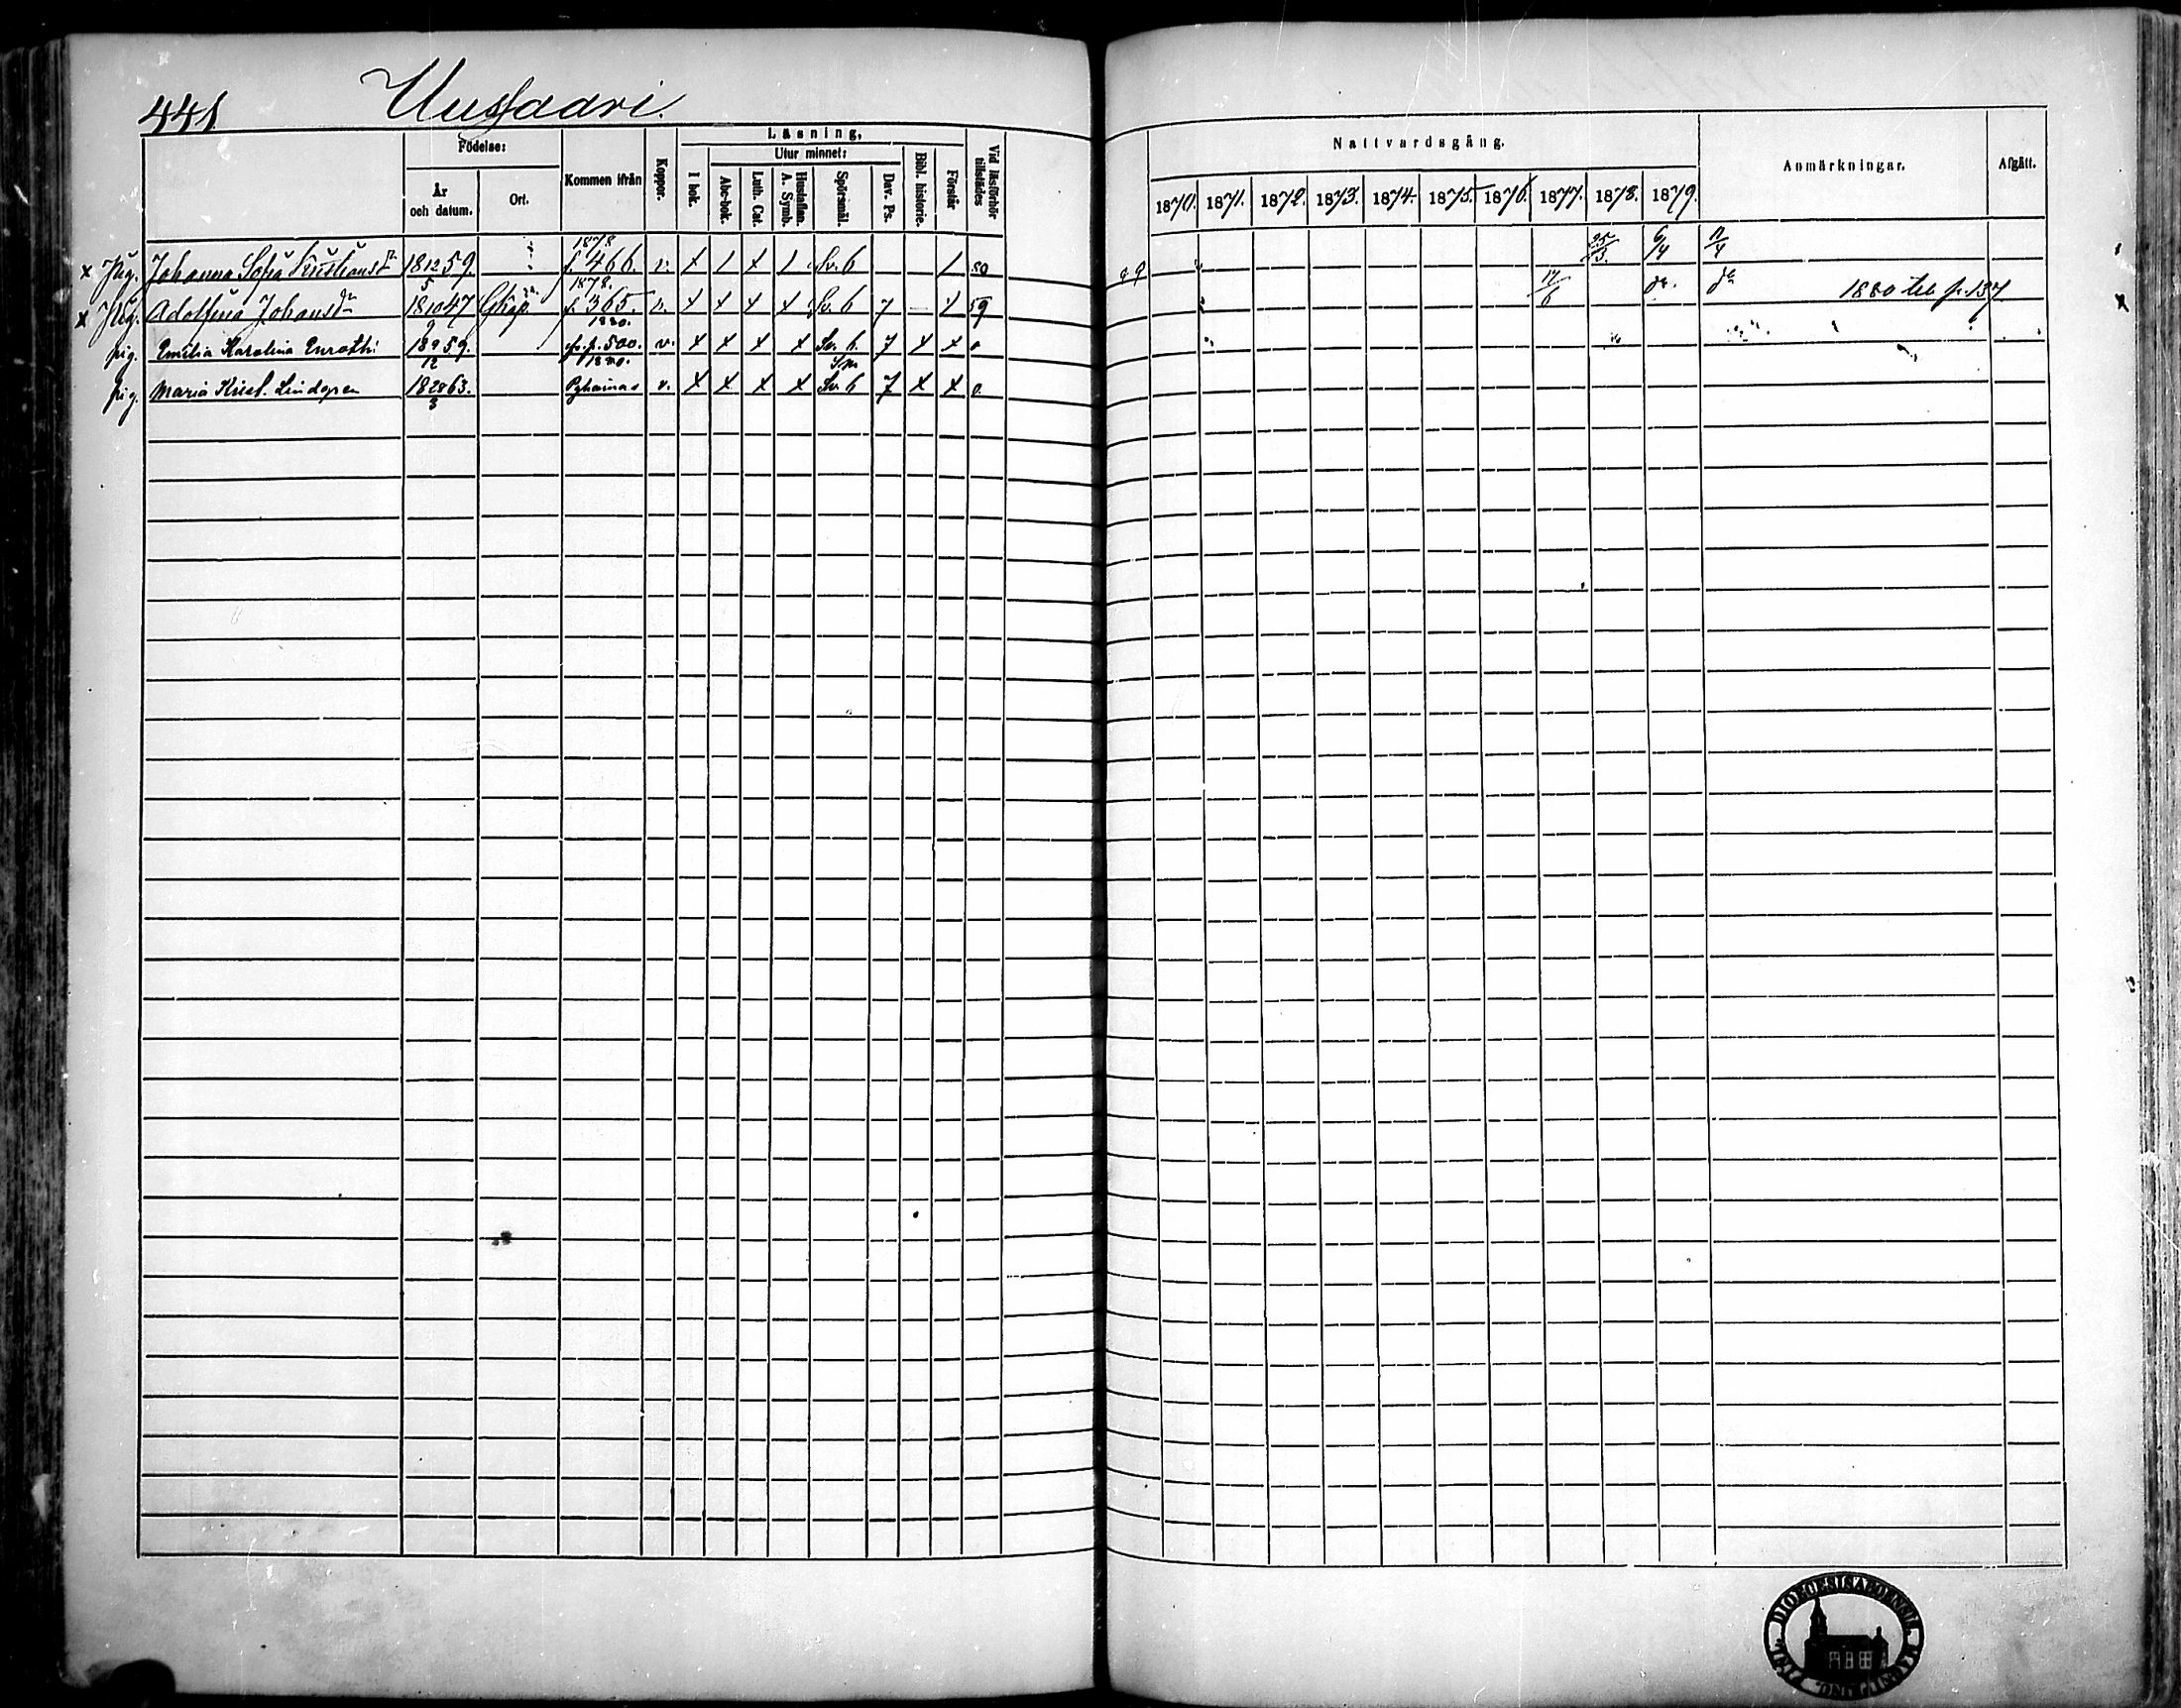 441 Uusfaari.
Födelse: Läsning, Nattvardsgång.
År och datum. Ort. Kommen ifrån Koppor. I bok. Utur minnet: Abc-bok. Luth. Cat. Hustaflan. A. Symb. Spörsmål. Dav. Ps. Bibl. historie. Förstår Vid läsförhör tillstädes 1870. 1871. 1872. 1873. 1874. 1875 1876. 1877. 1878. 1879. Anmärkningar. Afgått.
1878
x Pig. Johanna Sofia 18 12/5 59. f. 466. v. x / x / Sv. 6 / 80 25/3 6/4 11/4
1878.
x Pig. Adolfina Johansdr 18 10/9 47 f. 365. v. x x x x Sv. 6 7 x 59 17/6 do do 1880 till p. 137 x
1880.
pig. Emilia Karolina Enroth 18 9/12 59. p. 500. v. x x x x Sv. 6 7 x x o
1880.
pig. Maria Krist. Lindgren 18 20/3 63. Pyhämaa v. x x x x Sv. 6 7 x x o.